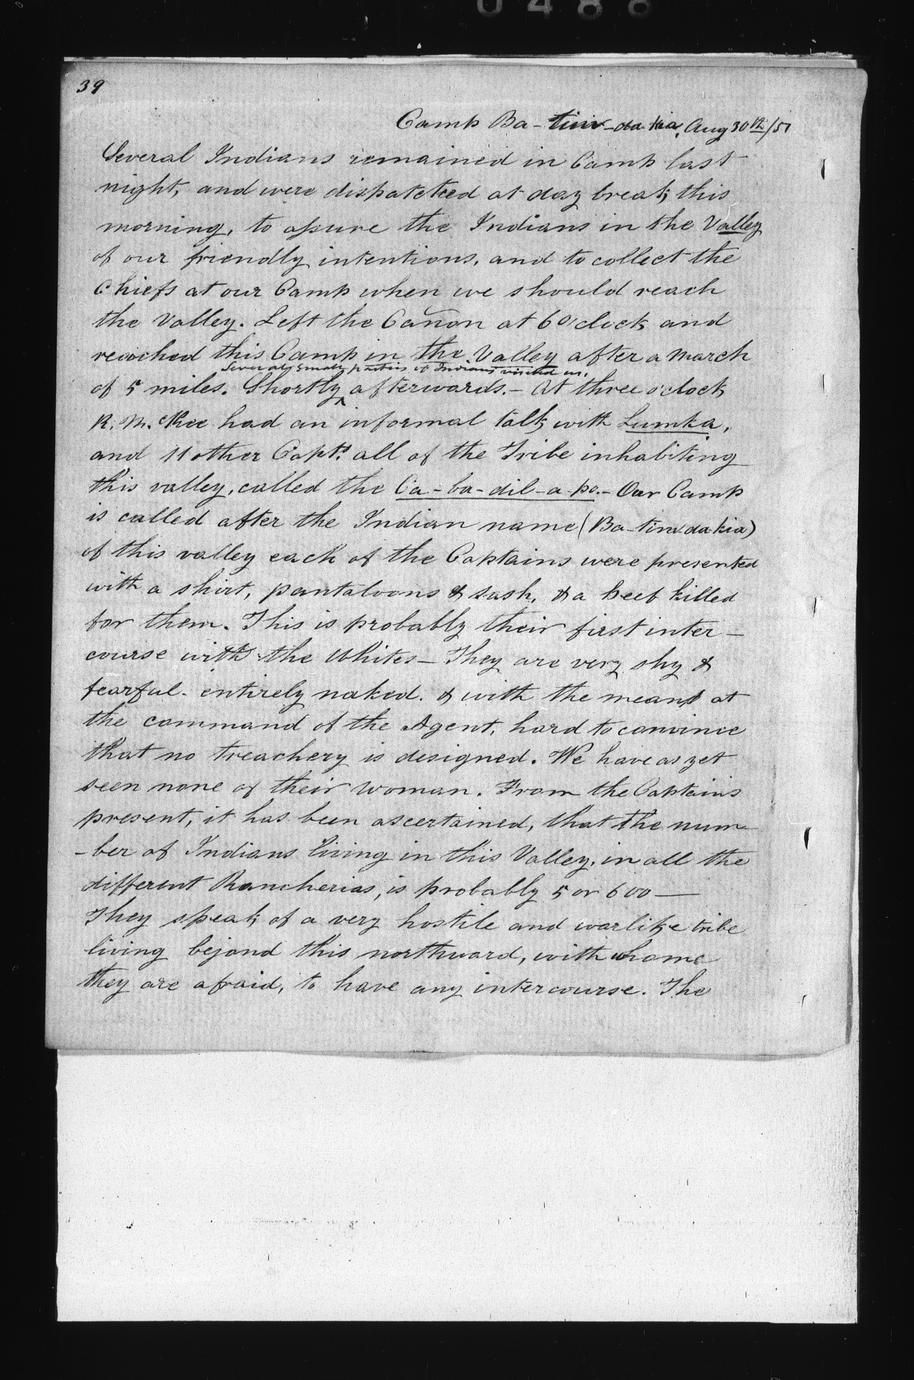 0488
39
Camp Ba-tim-da-kia, Aug 30th/51
Several Indians remained in Camp last
night, and were dispatched at day break this
morning, to assure the Indians in the Valley
of our friendly intentions, and to collect the
Chiefs at our Camp when we should reach
the Valley. Left the Cañon at 6 o'clock and
reached this Camp in the Valley after a march
Several small parties of Indians visited us.
of 5 miles. Shortly ^ afterwards.- At three o'clock
R. M. cKee had an informal talk with Lumka,
and 11 other Capts. all of the Tribe inhabiting
this valley, called the Ca-ba-dil-a-po.- Our Camp
is called after the Indian name (Ba-tim-da kia)
of this valley each of the Captains were presented
with a shirt, pantaloons & sash, & a beef killed
for them. This is probably their first inter-
course with the Whites- They are very shy &
fearful- entirely naked. & with the means at
the command of the Agent, hard to convince
that no treachery is designed. We have as yet
seen none of their woman. From the Captains
present, it has been ascertained, that the num-
-ber of Indians living in this Valley, in all the
different Rancherias, is probably 5 or 600—
They speak of a very hostile and warlike tribe
living bejond this northward, with whome
they are afraid, to have any intercourse. The